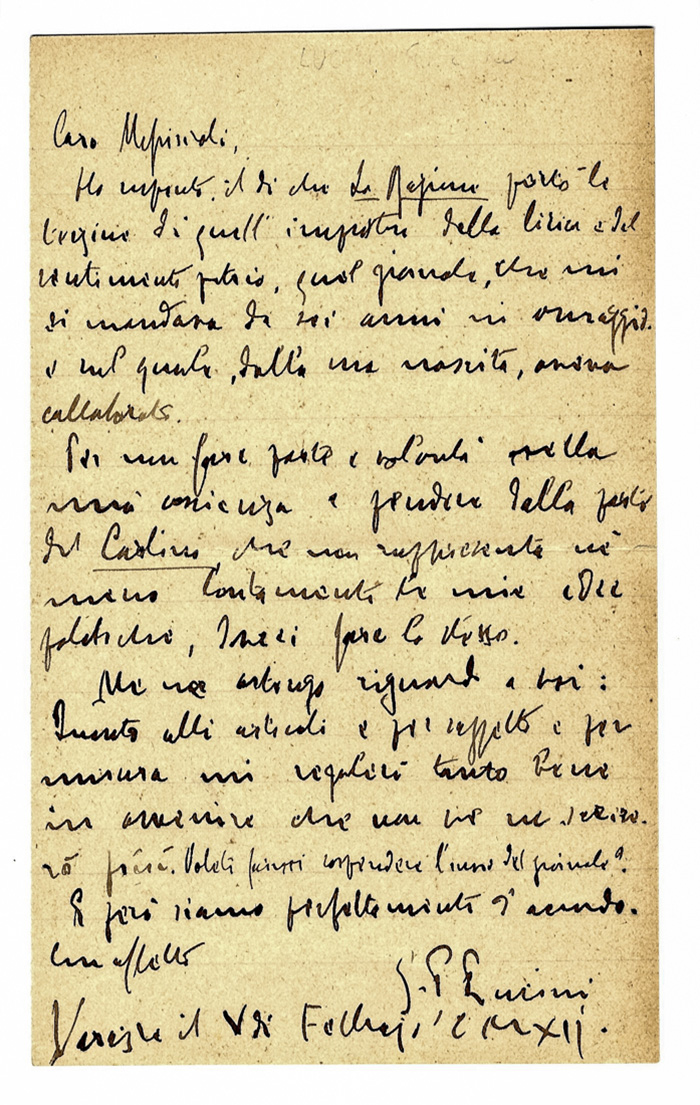 Caro
Ho il dì che La Ragione portò le
di quell' della lirica e del
sentimento patrio, quel giornale, che mi
si mandava da sei anni in omaggio.
e nel quale, dalla sua nascita, aveva
collaborato.
Per non fare parte e volontà nella
mia coscienza e pendere dalla parte
del Carlino, che non rappresenta nè
meno lontanamente le mie idee
politiche, fare lo stesso.
Me ne astengo riguardo a voi:
alli articoli e per rispetto e per
misura mi regolerò tanto bene
in avvenire che non ve ne scrive-
rò più. Volete farmi sospendere l'invio del giornale?
E però siamo perfettamente d'accordo.
Con affetto
G. P. Lucini
Varazze il V di Febbrajo